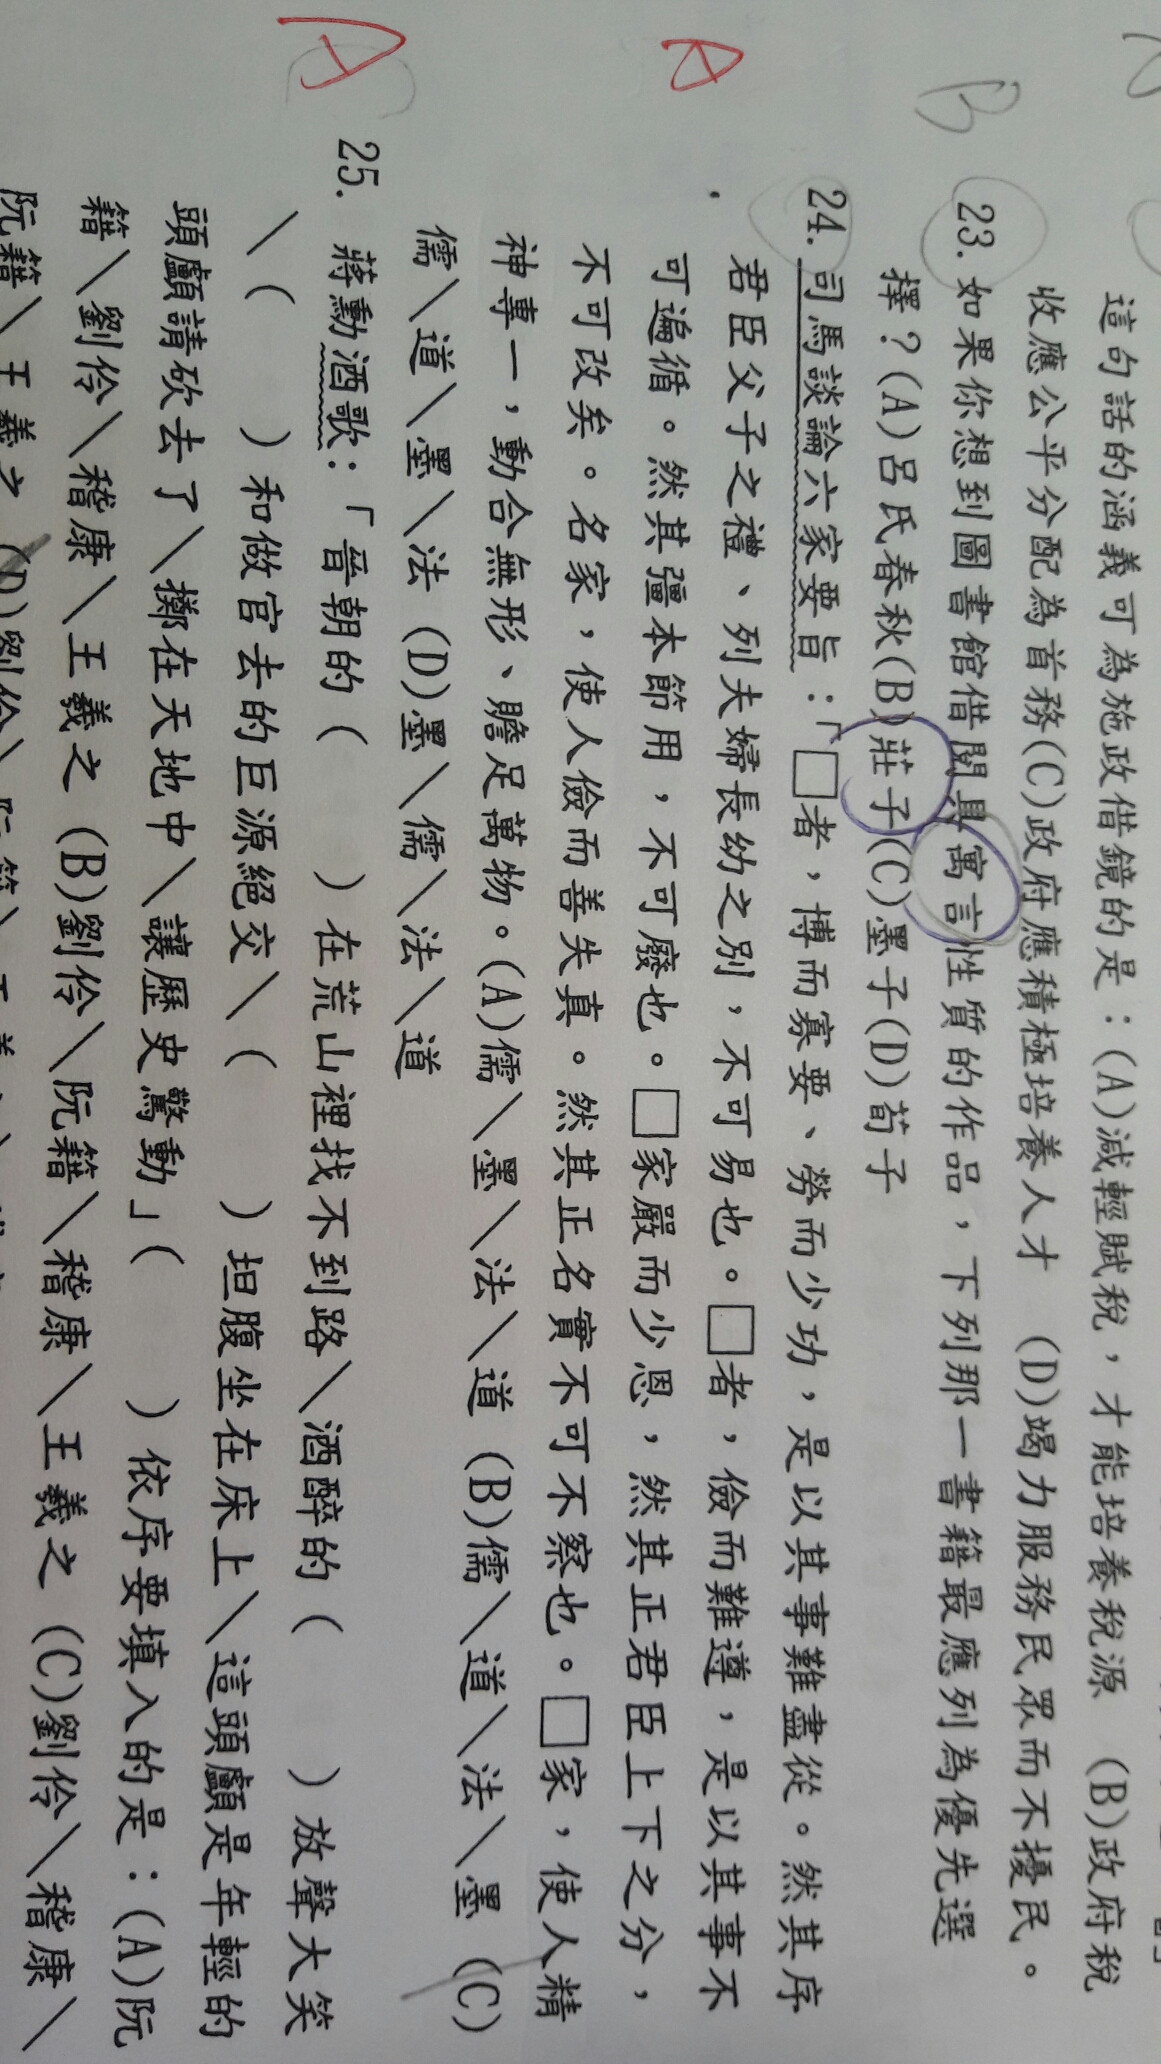 這句話的涵義可為施政借鏡的是：(A)減輕賦稅，才能培養稅源 (B)政府稅
收應公平分配為首務(C)政府應積極培養人才 (D)竭力服務民眾而不擾民。
B
23.如果你想到圖書館借閱具寓言性質的作品，下列那一書籍最應列為優先選
擇？(A)呂氏春秋(B)莊子(C)墨子(D)荀子
A
24.司馬談論六家要旨：「□者，博而寡要、勞而少功，是以其事難盡從。然其序
君臣父子之禮、列夫婦長幼之別，不可易也。□者，儉而難遵，是以其事不
可遍循。然其彊本節用，不可廢也。□家嚴而少恩，然其正君臣上下之分，
不可改矣。名家，使人儉而善失真。然其正名實不可不察也。□家，使人精
神專一，動合無形、贍足萬物。(A)儒\墨\法\道 (B)儒\道\法\墨 (C)
儒\道\墨\法 (D)墨\儒\法\道
A
25.蔣勳酒歌：「晉朝的（ ）在荒山裡找不到路\酒醉的（ ）放聲大笑
\（ ）和做官去的巨源絕交\（ ）坦腹坐在床上\這頭顱是年輕的
頭顱請砍去了\擲在天地中\讓歷史驚動」（ ）依序要填入的是：(A)阮
籍\劉伶\稽康\王羲之 (B)劉伶\阮籍\稽康\王羲之 (C)劉伶\稽康\
阮籍\王羲之 (D)劉伶\阮籍\